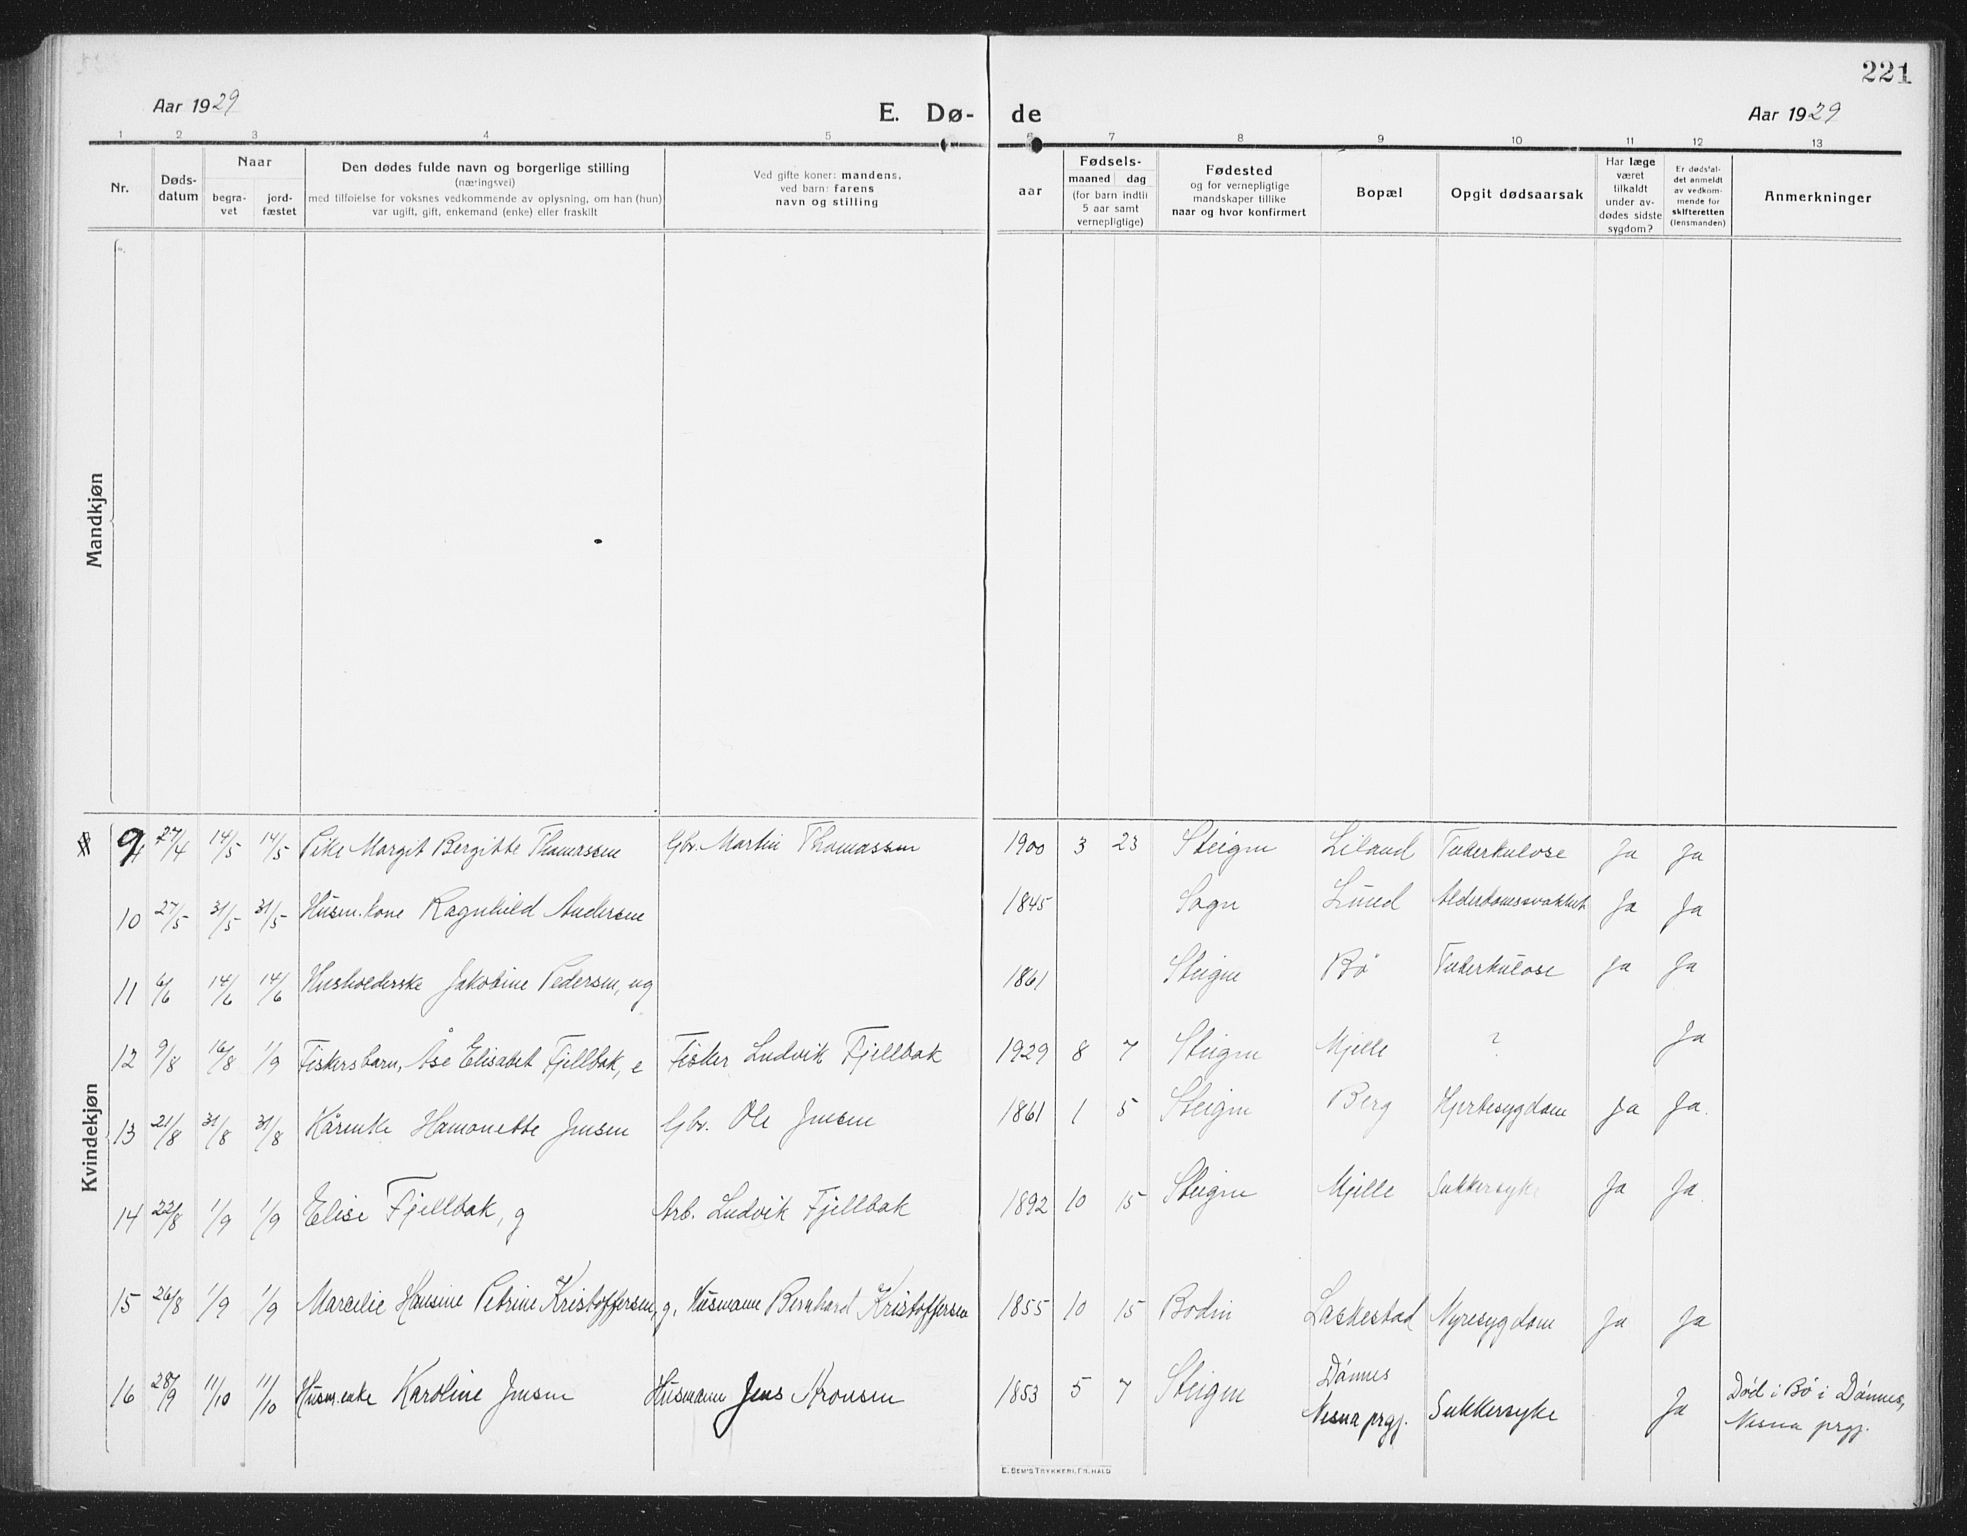 221
Aar 1929
E. Dø-
de
Aar 1929
1 2 3 4 5 6 7 8 9 10 11 12 13
Nr.
Døds-
datum
Naar
begra-
vet
jord-
fæstet
Den dødes fulde navn og borgerlige stilling
(næringsvei)
med tilføielse for voksnes vedkommende av oplysning, om han (hun)
var ugift, gift, enkemand (enke) eller fraskilt
Ved gifte koner: mandens,
ved barn: farens
navn og stilling
Fødsels-
aar
maaned dag
(for barn indtil
5 aar samt
vernepligtige)
Fødested
og for vernepligtige
mandskaper tillike
naar og hvor konfirmert
Bopæl
Opgit dødsaarsak
Har læge
været
tilkaldt
under av-
dødes sidste
sygdom?
Er dødsfal-
det anmeldt
av vedkom-
mende for
skifteretten
(lensmanden)
Anmerkninger
Mandkjøn
Kvindekjøn
9 27/4 14/5 14/5 Pike Margit Bergitte Thomassen Gbr. Martin Thomassen 1900 3 23 Steigen Liland Tuberkulose Ja Ja
10 27/5 31/5 31/5 Husm.kone Ragnhild Andersen 1845 Sogn Lund Alderdomssvakhet Ja Ja
11 6/6 14/6 14/6 Husholderske Jakobine Pedersen, ug 1861 Steigen Bø Tuberkulose Ja Ja
12 9/8 16/8 1/9 Fiskersbarn, Åse Elisabet Fjellbak, e Fisker Ludvik Fjellbak 1929 8 7 Steigen Mjelle ? Ja
13 21/8 31/8 31/8 Kårenke Hamonette Jensen Gbr. Ole Jensen 1861 1 5 Steigen Berg Hjertesygdom Ja Ja.
14 22/8 1/9 1/9 Elise Fjellbak, g Arb. Ludvik Fjellbak 1892 10 15 Steigen Mjelle Sukkersyke Ja Ja.
15 26/8 1/9 1/9 Marcelie Hansine Petrine Kristoffersen, g. Husmann Bernhard Kristoffersen 1855 10 15 Bodin Laskestad Nyresygdom Ja Ja
16 28/9 11/10 11/10 Husm.enke Karoline Jensen Husmann Jens Aronsen 1853 5 7 Steigen Dønnes Nesna prgj. Sukkersyke Ja Død i Bø i Dønnes,
Nesna prgj.
E. SEM'S TRYKKERI, FR. HALD